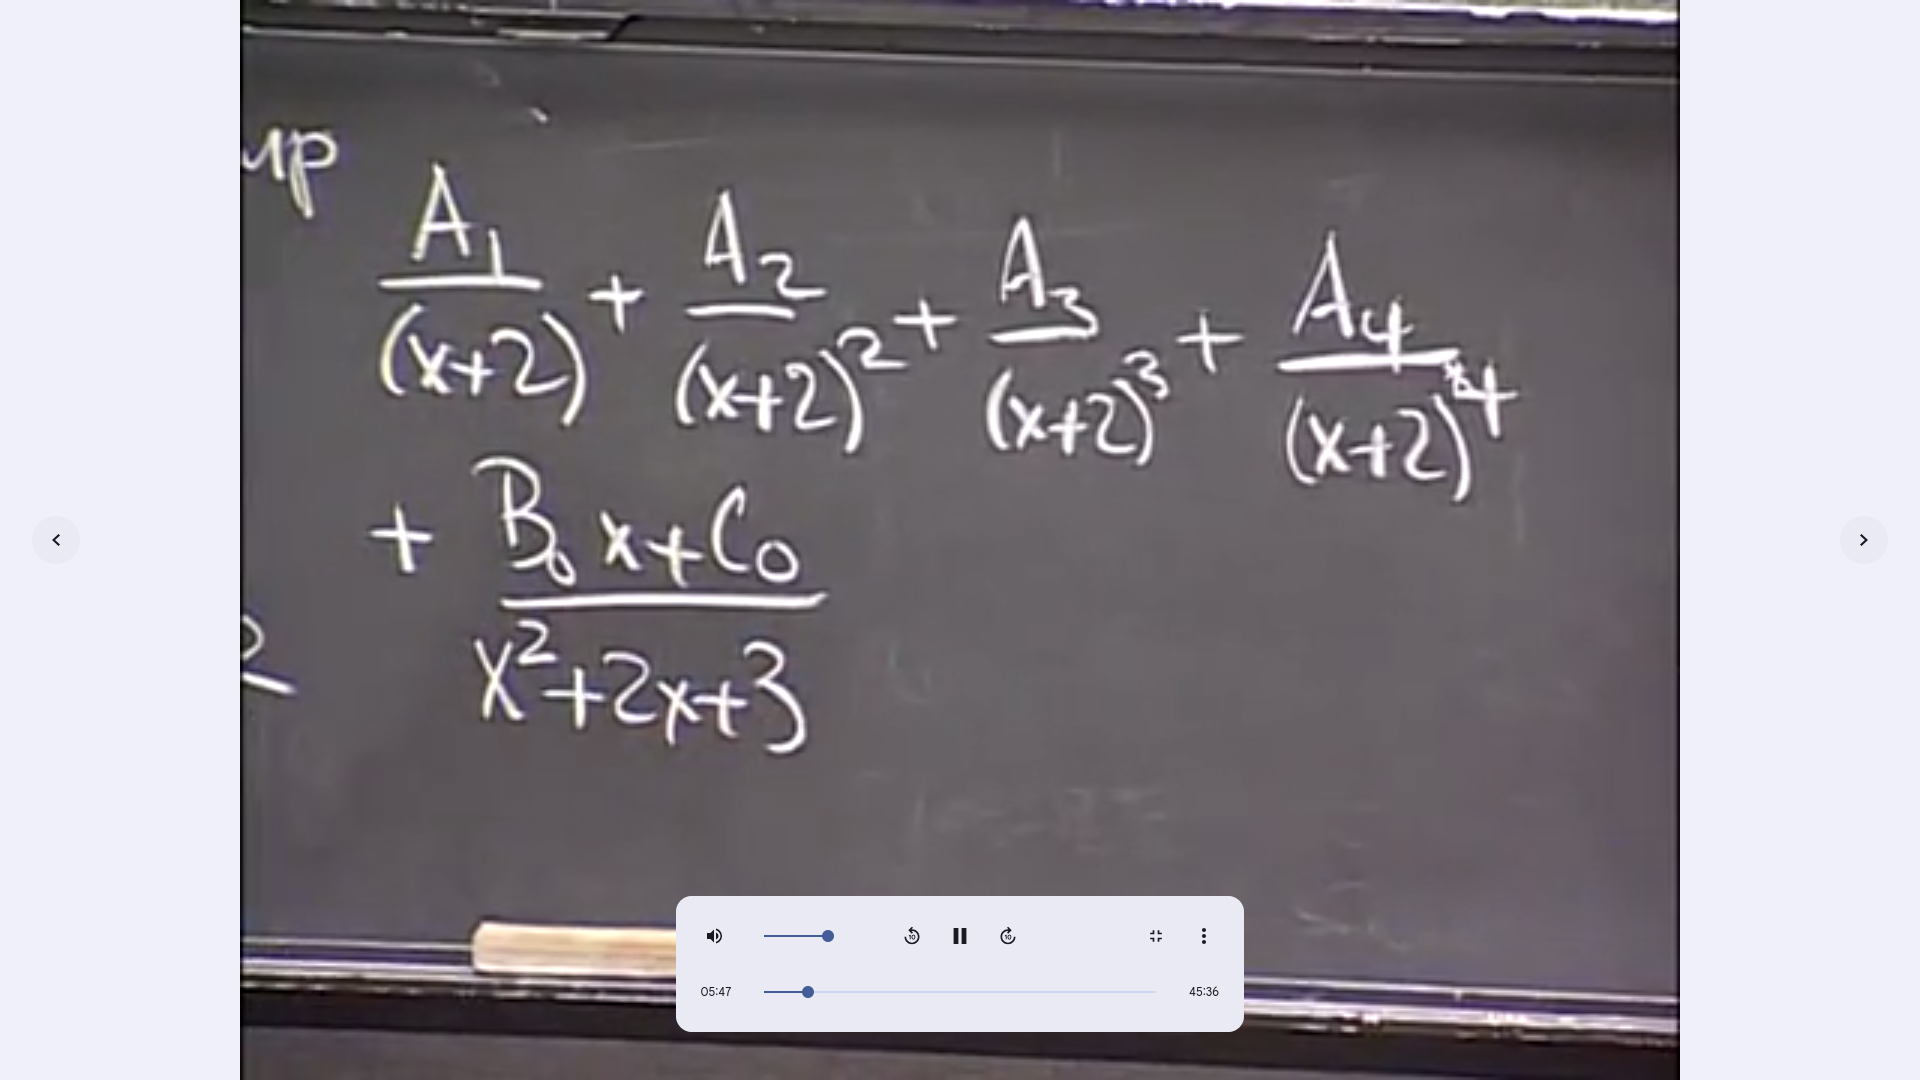 up
A₁/(x+2) + A₂/(x+2)² + A₃/(x+2)³ + A₄/(x+2)⁴
+ (B₀x+C₀)/(x²+2x+3)
2
10
10
05:47
45:36